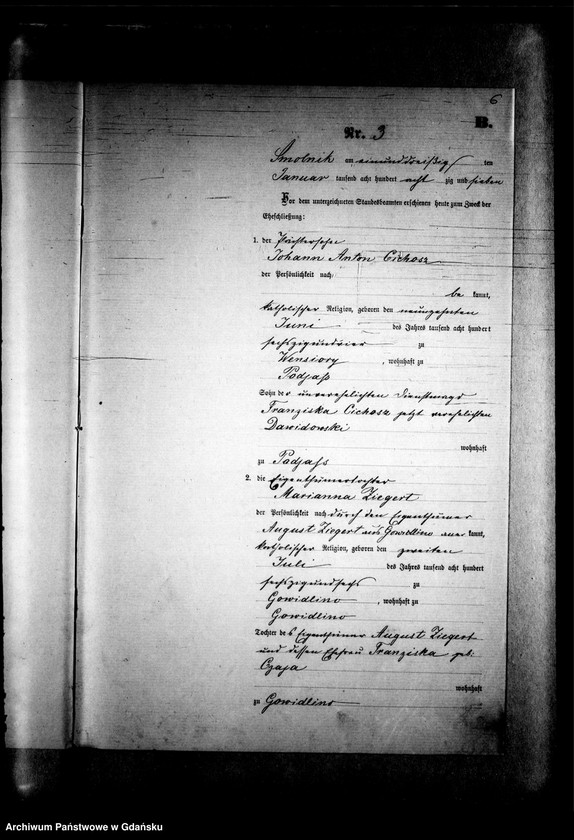 6
B.
Nr. 3
Smolnik am einunddreißigsten
Januar tausend acht hundert acht zig und sieben
Vor dem unterzeichneten Standesbeamten erschienen heute zum Zweck der
Eheschließung:
1. der
Johann Anton Cichosz
der Persönlichkeit nach
be kannt,
katholischer Religion, geboren den neunzehnten
Juni des Jahres tausend acht hundert
sechszigundvier zu
Wensiory, wohnhaft zu
Podjaß
Sohn der unverehelichten Dienstmagd
Franziska Cichosz jetzt verehelichten
Dawidowski
wohnhaft
zu Podjaß
2. die Eigenthümertochter
Marianna Ziegert
der Persönlichkeit nach durch den Eigenthümer
August Ziegert aus Gowidlino aner kannt,
katholischer Religion, geboren den zweiten
Juli des Jahres tausend acht hundert
sechszigundsechs zu
Gowidlino, wohnhaft zu
Gowidlino
Tochter des Eigenthümer August Ziegert
und dessen Ehefrau Franziska geb:
Czaja
wohnhaft
zu Gowidlino
Archiwum Państwowe w Gdańsku